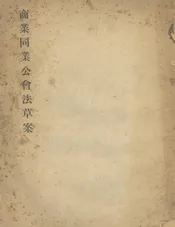 商業同業公會法草案